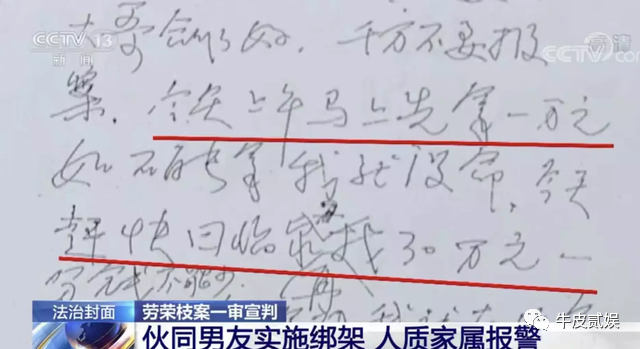 CCTV 13
新闻
高清
CCTV.com
会们的好. 千万不要报
案. 今天上午马上先拿一万元
如不能拿我就没命, 今天
赶快回临 我30万元一
分钱不能少.
法治封面
劳荣枝案一审宣判
伙同男友实施绑架 人质家属报警
牛皮贰娱